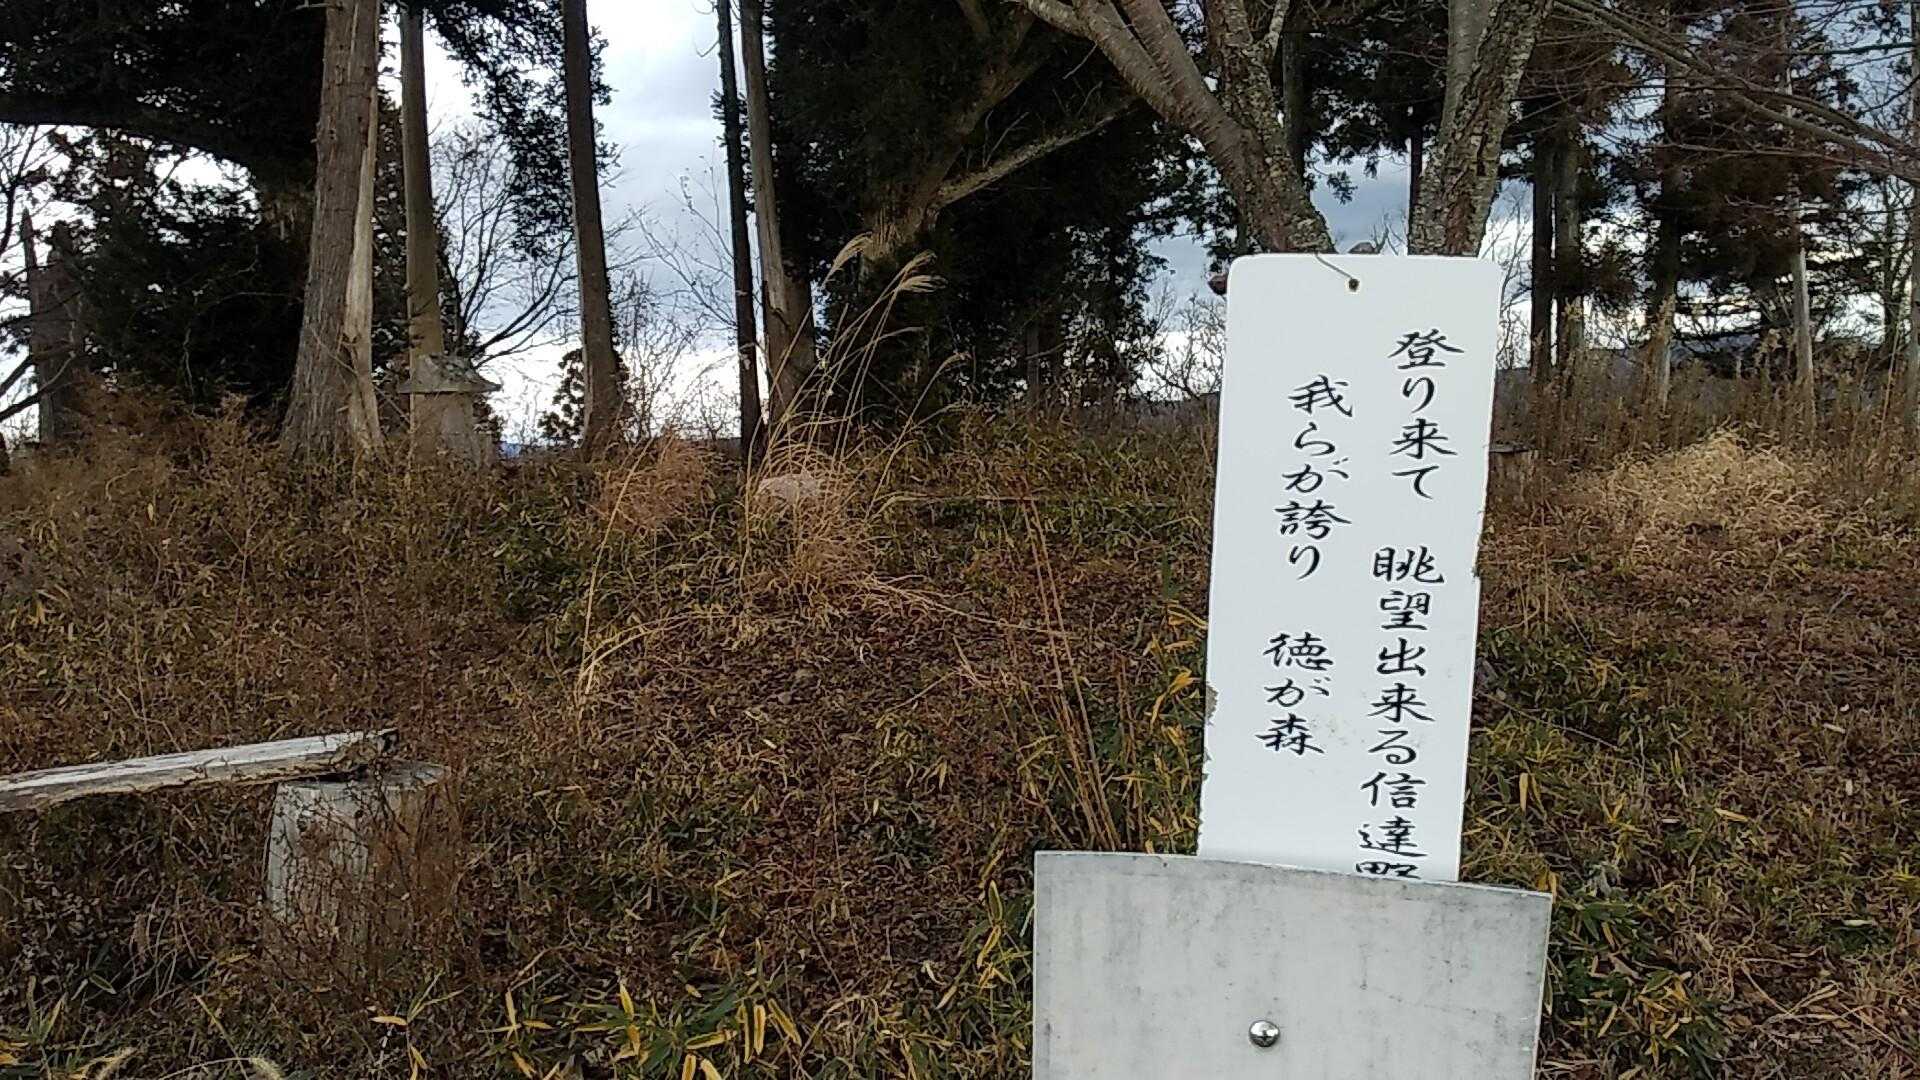 登り来て　眺望出来る信達野
我らが誇り　徳が森